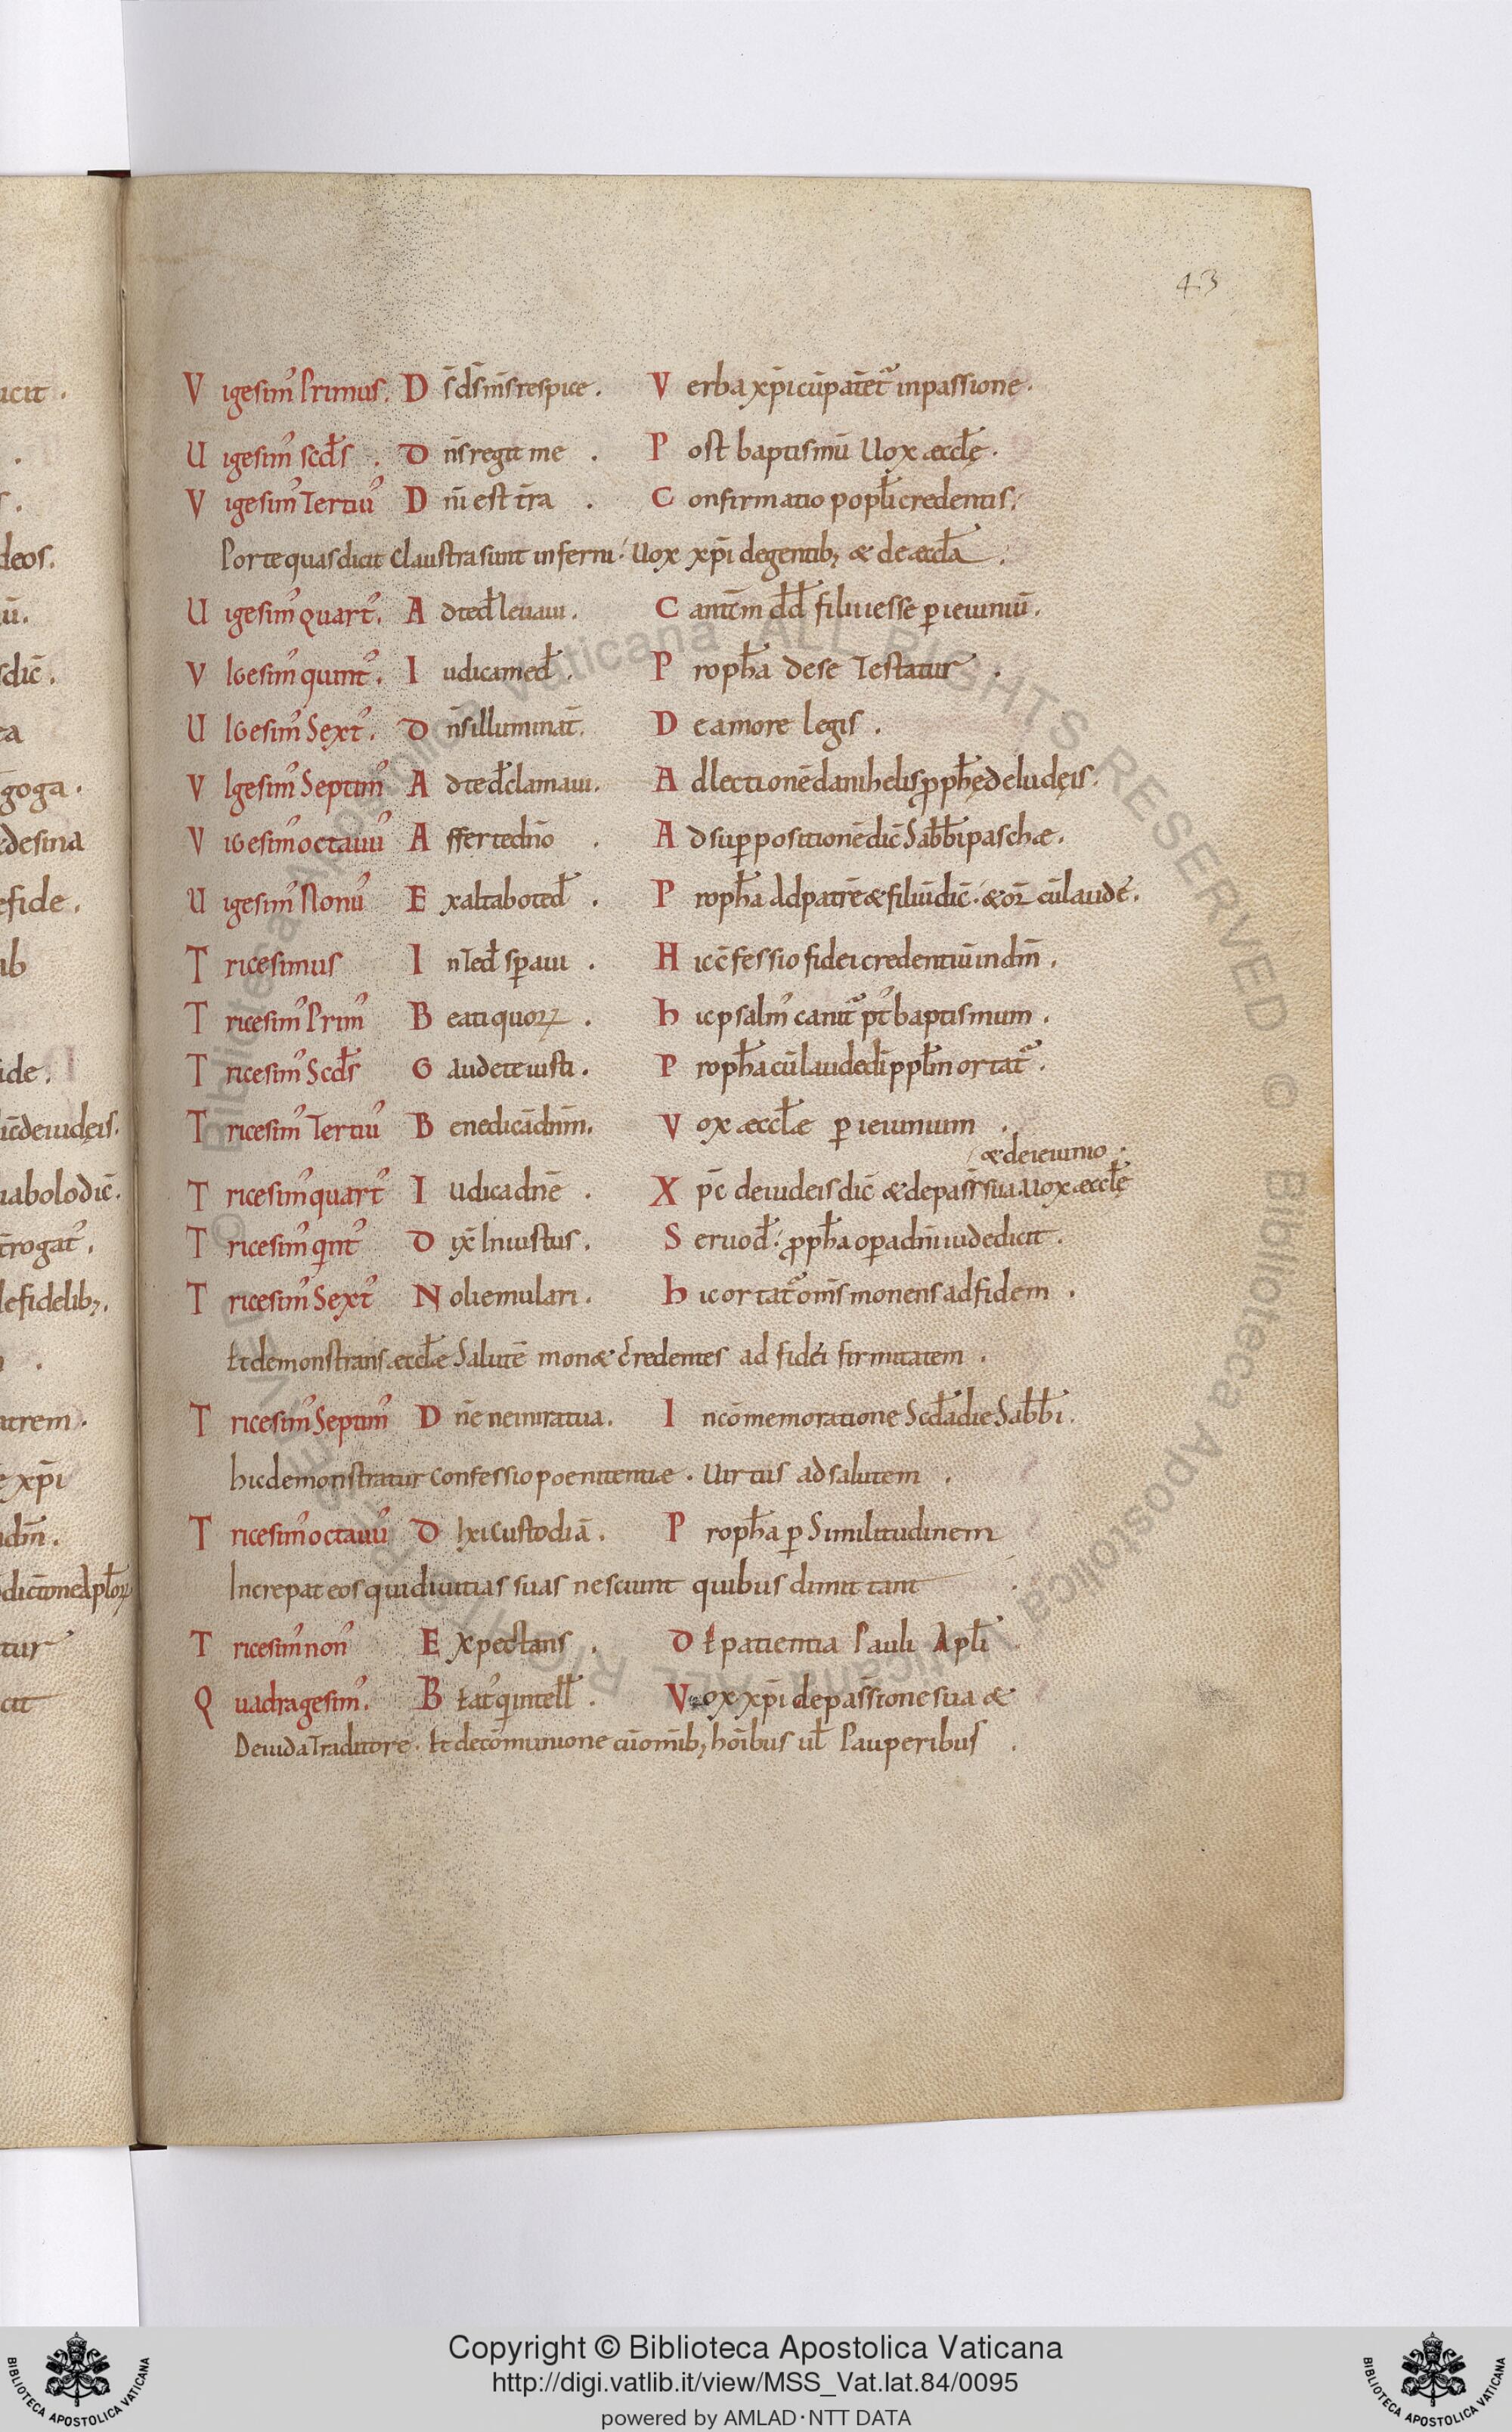 43
Vigesim᾽ Primus. Ds̄ ds̄ ms̄ respice. Verba xp̄i cū patē et᷑ in passione.
Uigesim᾽ scd̄s. Dn̄s regit me. Post baptismū Uox æccl̄ę.
Vigesim᾽ Tertiu᾽ Dn̄i est tr̄a. Confirmatio popl̄i credentis.
Porte quas dicit claustra sunt inferni. Uox xp̄i de gentib; & de æccl̄a.
Uigesim᾽ quart᾽. Ad te d̄ levavi. C d̄d̄ filiu esse p̱ ieiuniū.
VIGesim᾽ quint᾽. Iudica me d̄. Proph̄a de se Testatur.
UIGesim᾽ Sext᾽. Dn̄s illuminat̄. De amore legis.
VIgesim᾽ Septim᾽ Ad te d̄ clamavi. Ad lectionē danihelis ꝓph̄ę de Iudęis.
ViGesim᾽ octavu᾽ Afferte dn̄o. Ad sup̱positionē dic̄ Sab̄b̄i paschæ.
Uigesim᾽ Nonu᾽ Exaltabo te d̄. Proph̄a Ad patrē & filiū dic̄. & oꝝ cū laude.
Tricesimus In Te d̄ sp̱avi. Hic c̄fessio fidei credentiū in dm̄.
Tricesim᾽ Prim᾽ Beati quoꝝ. hic psalm᾽ canit᷑ p᾽t baptismum.
Tricesim᾽ Scd̄s Gaudete iusti. Proph̄a cū laude dī ppl̄m ortat᷑.
Tricesim᾽ Tertiu᾽ Benedicā dn̄m. Vox æccl̄æ p̱ ieiunium.
& de ieiunio.
Tricesim᾽ quart᾽ Iudica dn̄e. Xp̄c de iudeis dic̄ & de pass̄ sua. Uox æccl̄ę
Tricesim᾽ qint᾽ Dix̄ Iniustus. Servo d̄. ꝓph̄a op̱a dn̄i iude dicit.
Tricesim᾽ Sext᾽ Noli emulari. hic ortat᷑ om̄s monens ad fidem.
Et demonstrans æccl̄æ Salutē mon& credentes ad fidei firmitatem.
Tricesim᾽ Septim᾽ Dn̄e ne in ira tua. In cōmemoratione Scd̄a die Sab̄b̄i.
hic demonstratur confessio poenitentiæ. Virtus ad salutem.
Tricesim᾽ octavu᾽ DIxi Custodiā. Proph̄a p̱ Similitudinem
Increpat eos qui divitias suas nesciunt quibus dimittant.
Tricesim᾽ non᾽ Expectans. DE patientia Pauli Apl̄i
Quadragesim᾽. BEat᾽ q̇ intell̄. Vox xp̄i de passione sua &
De iuda Traditore. Et de cōmunione cū om̄ib; hōibus ul̄ Pauperibus.
Copyright © Biblioteca Apostolica Vaticana
http://digi.vatlib.it/view/MSS_Vat.lat.84/0095
powered by AMLAD·NTT DATA